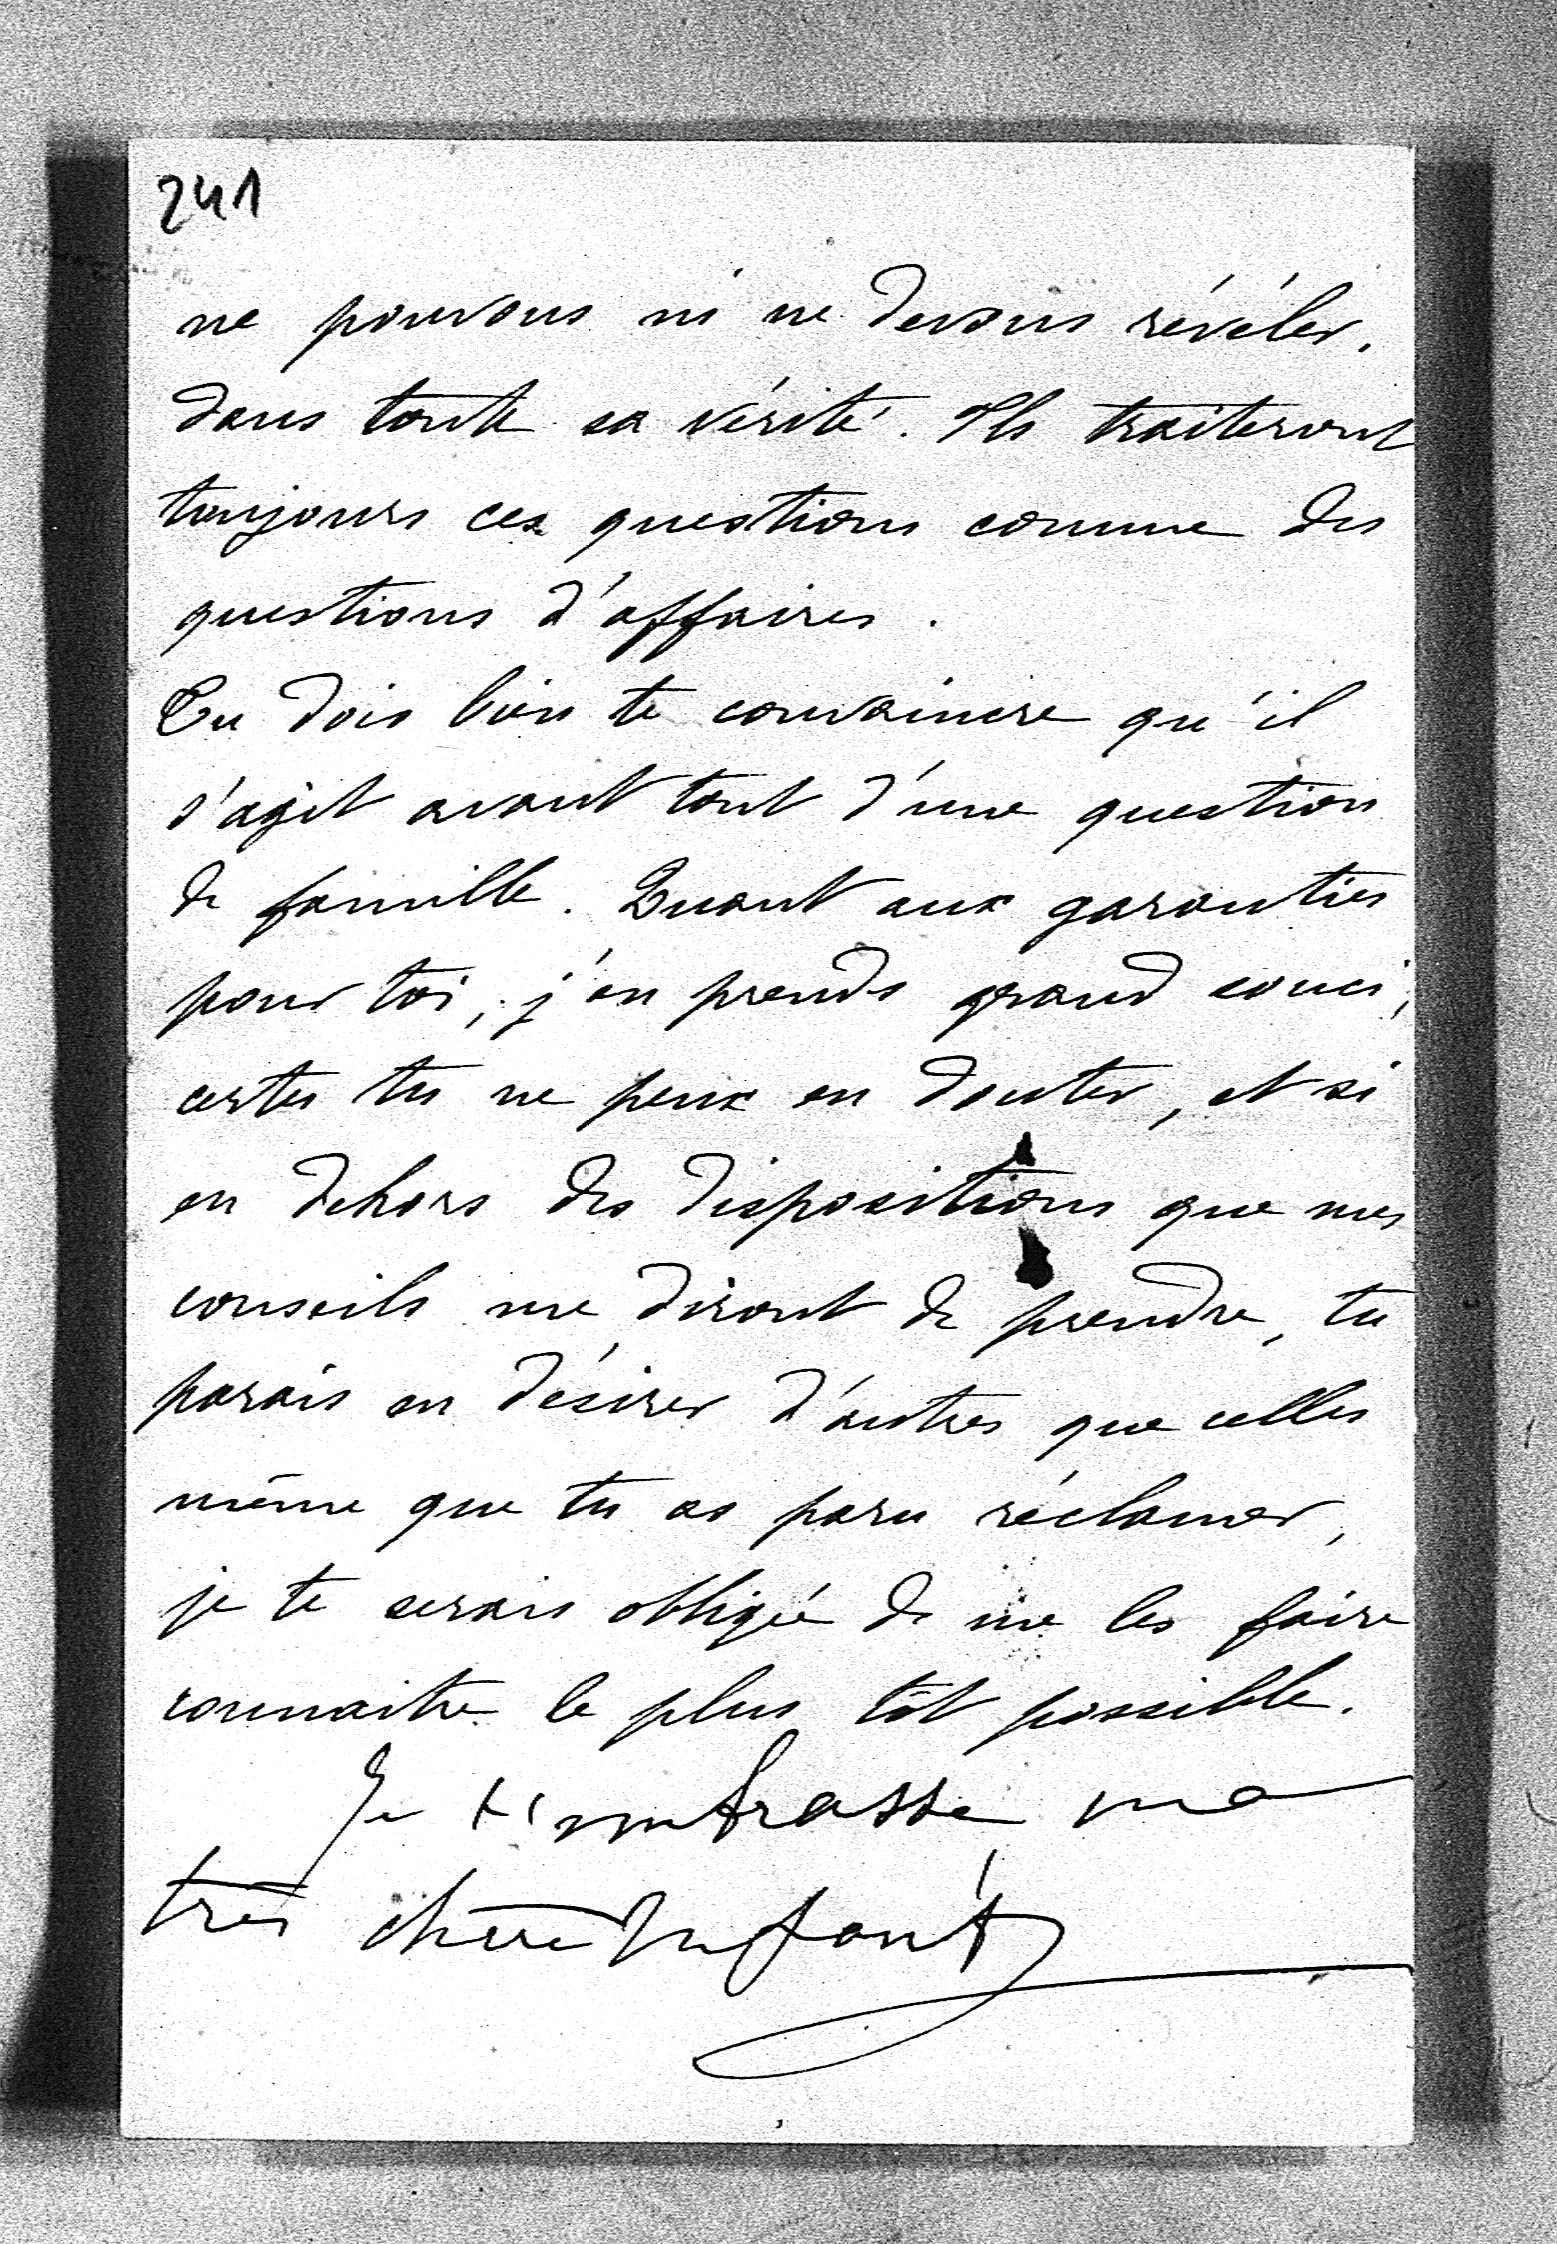 241
ne pouvons ni ne devons révéler,
dans toute sa vérité. Ils traiteront
toujours ces questions comme des
questions d'affaires.
Tu dois bien te convaincre qu'il
s'agit avant tout d'une question
de famille. Quant aux garanties
pour toi, j'en prends grand souci,
certes tu ne peux en douter, et si
en dehors des dispositions que mes
conseils me diront de prendre, tu
parais en désirer d'autres que celles
même que tu as paru réclamer,
je te serais obligée de me les faire
connaitre le plus tôt possible.
Je t'embrasse ma
très chère Enfant